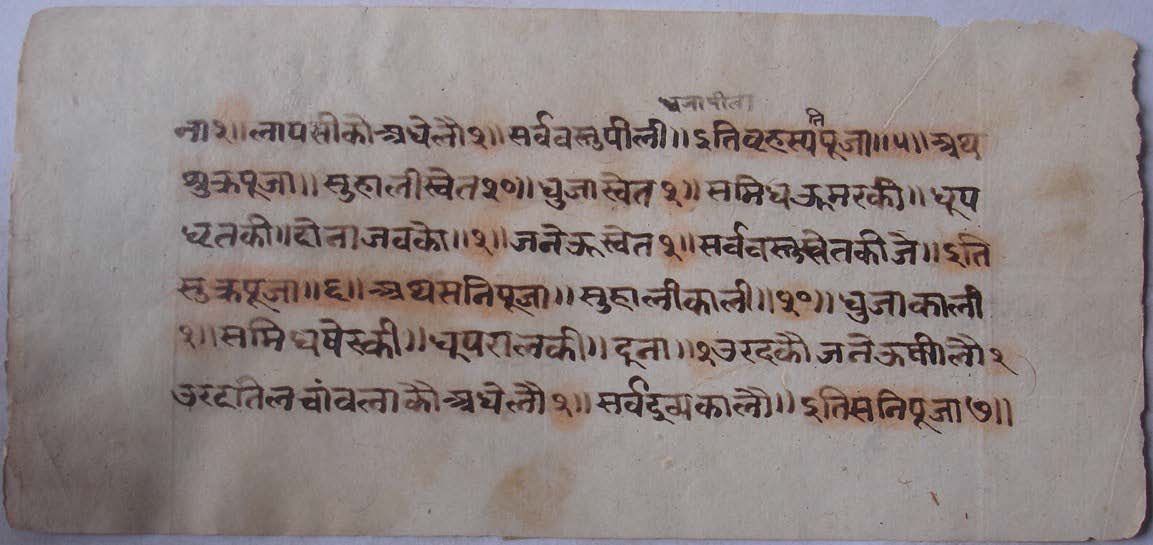 धजा पीली
ना१॥ लापसीकौ अधेलौ १॥ सर्ववस्तुपीली॥ इतिवृहस्पतिपूजा॥५॥ अथ
शुक्रपूजा॥ सुहालीस्वेत१०॥ धुजास्वेत १॥ समिधऊमरकी॥ धूप
घृतकी॥ दोना जवको॥१॥ जनेऊस्वेत १॥ सर्ववस्तुस्वेतकीजै॥ इति
सुक्रपूजा॥६॥ अथसनिपूजा॥ सुहालीकाली॥१०॥ धुजाकाली
१॥ समिधषेरकी॥ धूपरालकी॥ दूना॥१ उरदकौ जनेऊपीलौ १
उरदतिलचांवलाकौ अधेलौ १॥ सर्वद्रव्यकालौ॥ इतिसनिपूजा ७॥